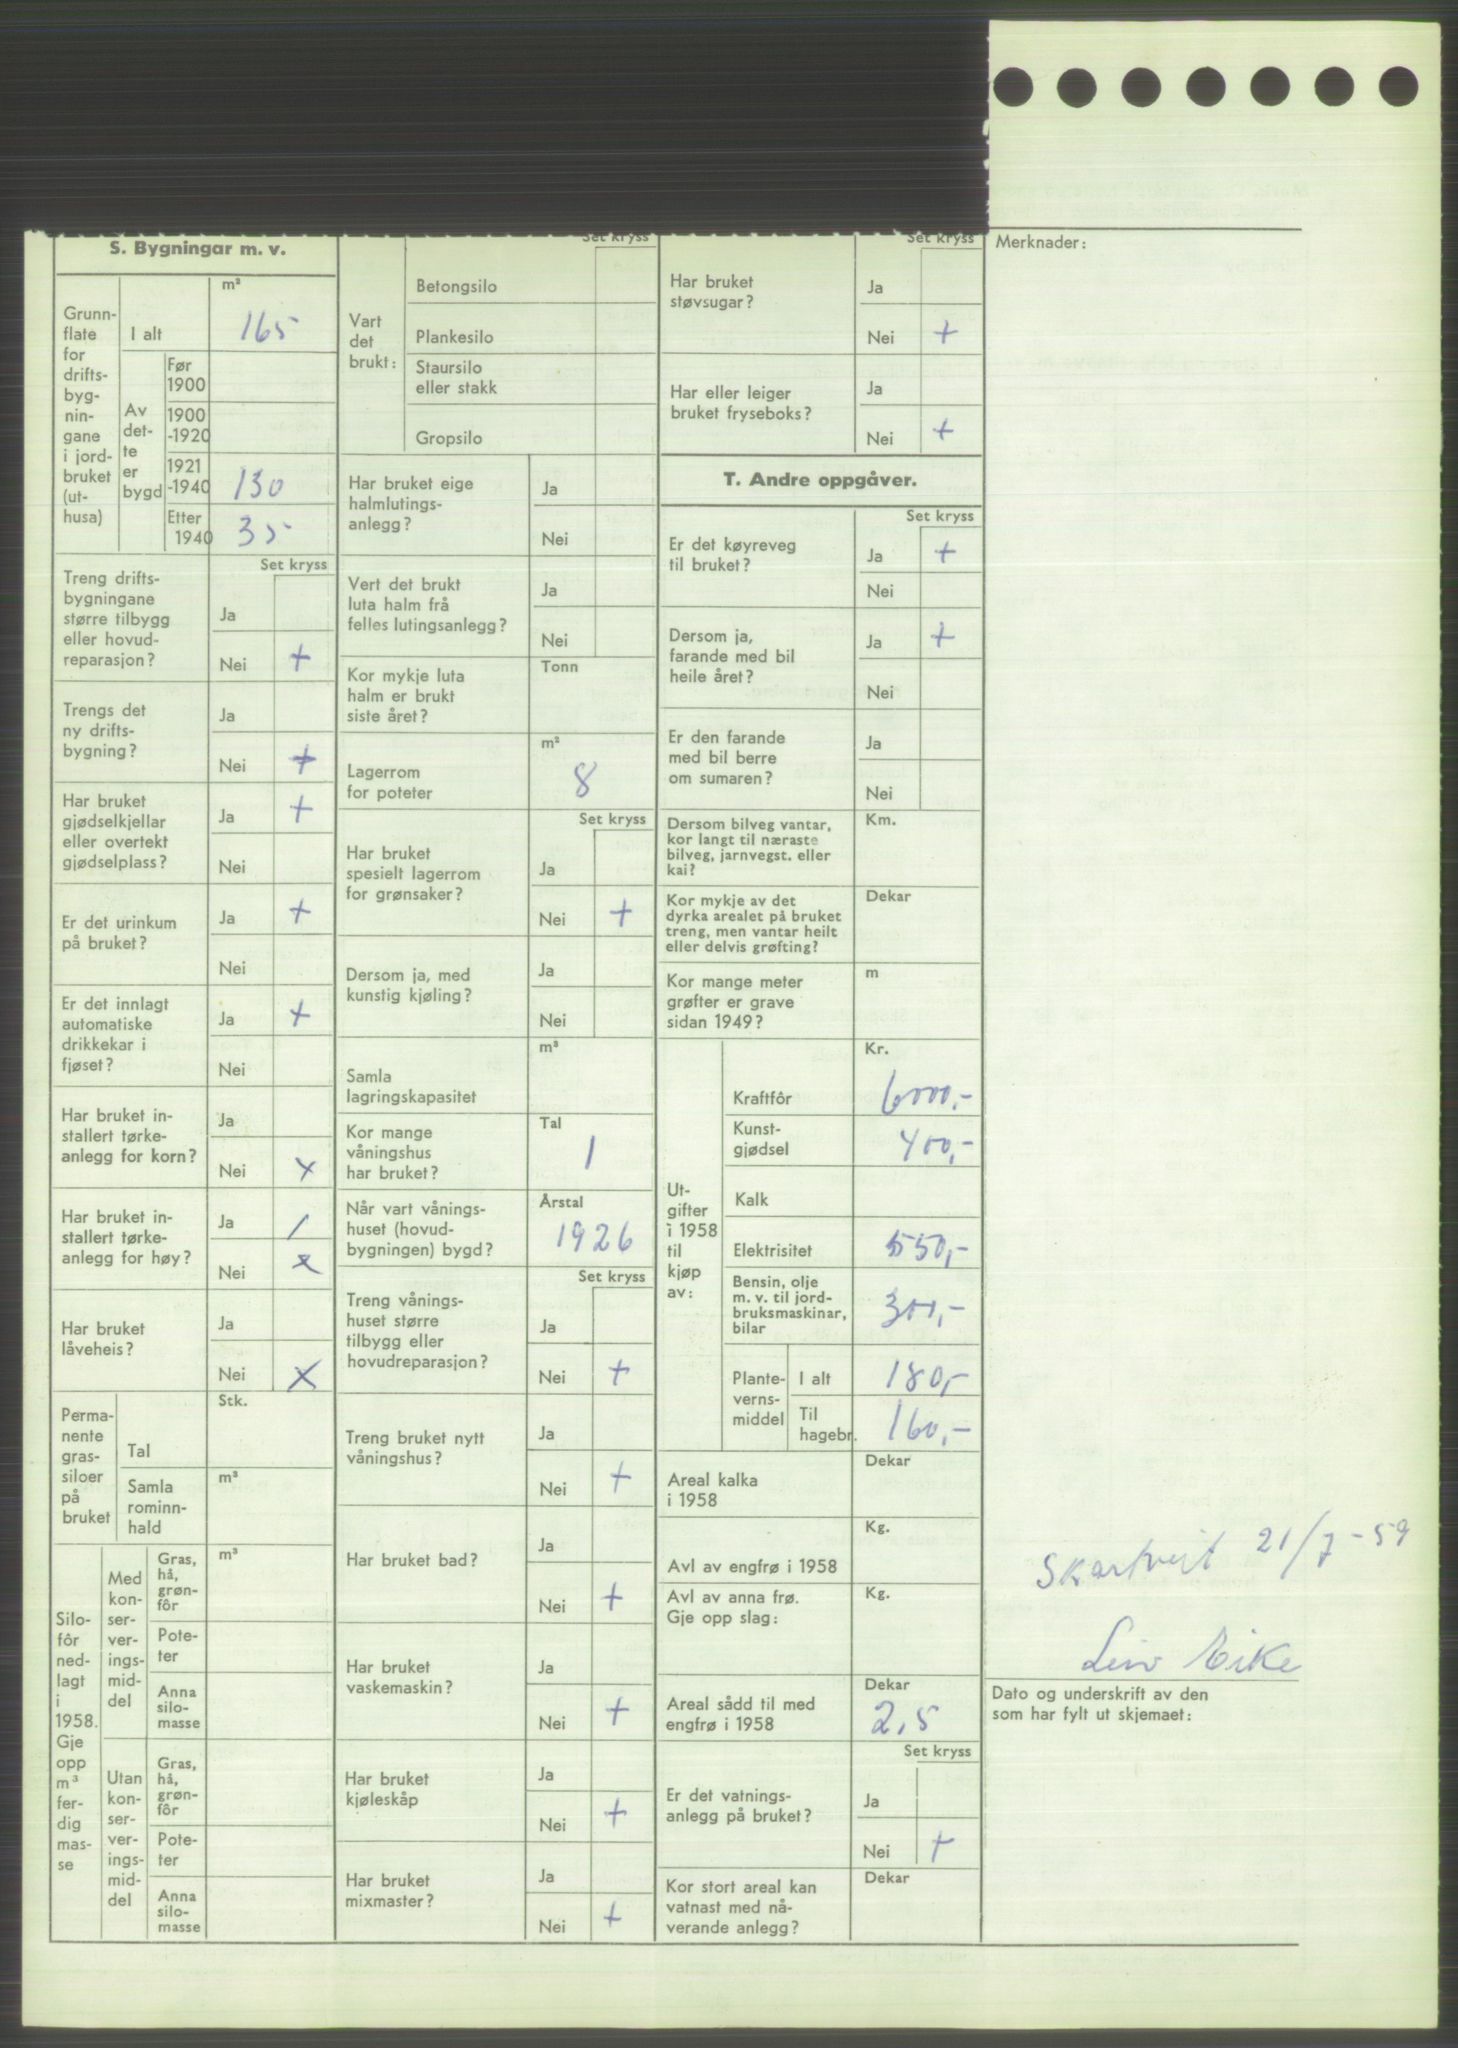 S. Bygningar m. v.
Grunn-
flate
for
drifts-
byg-
nin-
gane
i jord-
bruket
(ut-
husa)
I alt
m²
165
Av
det-
te
er
bygd
Før
1900
1900
-1920
1921
-1940
130
Etter
1940
35
Set kryss
Treng drifts-
bygningane
større tilbygg
eller hovud-
reparasjon?
Ja
Nei +
Trengs det
ny drifts-
bygning?
Ja
Nei +
Har bruket
gjødselkjellar
eller overtekt
gjødselplass?
Ja +
Nei
Er det urinkum
på bruket?
Ja +
Nei
Er det innlagt
automatiske
drikkekar i
fjøset?
Ja +
Nei
Har bruket in-
stallert tørke-
anlegg for korn?
Ja
Nei x
Har bruket in-
stallert tørke-
anlegg for høy?
Ja /
Nei x
Har bruket
låveheis?
Ja
Nei X
Perma-
nente
gras-
siloer
på
bruket
Tal
Stk.
Samla
rominn-
hald
m³
Silo-
fôr
ned-
lagt
i
1958.
Gje
opp
m³
fer-
dig
mas-
se
Med
kon-
ser-
ver-
ings-
mid-
del
Gras,
hå,
grøn-
fôr
m³
Pote-
ter
Anna
silo-
masse
Utan
kon-
ser-
ver-
ings-
mid-
del
Gras,
hå,
grøn-
fôr
Pote-
ter
Anna
silo-
masse
Set kryss
Vart
det
brukt:
Betongsilo
Plankesilo
Staursilo
eller stakk
Gropsilo
Har bruket eige
halmlutings-
anlegg?
Ja
Nei
Vert det brukt
luta halm frå
felles lutingsanlegg?
Ja
Nei
Kor mykje luta
halm er brukt
siste året?
Tonn
Lagerrom
for poteter
m²
8
Set kryss
Har bruket
spesielt lagerrom
for grønsaker?
Ja
Nei +
Dersom ja, med
kunstig kjøling?
Ja
Nei
Samla
lagringskapasitet
m³
Kor mange
våningshus
har bruket?
Tal
1
Når vart vånings-
huset (hovud-
bygningen) bygd?
Årstal
1926
Set kryss
Treng vånings-
huset større
tilbygg eller
hovudreparasjon?
Ja
Nei +
Treng bruket nytt
våningshus?
Ja
Nei +
Har bruket bad?
Ja
Nei +
Har bruket
vaskemaskin?
Ja
Nei +
Har bruket
kjøleskåp
Ja
Nei +
Har bruket
mixmaster?
Ja
Nei +
Set kryss
Har bruket
støvsugar?
Ja
Nei +
Har eller leiger
bruket fryseboks?
Ja
Nei +
T. Andre oppgåver.
Set kryss
Er det køyreveg
til bruket?
Ja +
Nei
Dersom ja,
farande med bil
heile året?
Ja +
Nei
Er den farande
med bil berre
om sumaren?
Ja
Nei
Dersom bilveg vantar,
kor langt til næraste
bilveg, jarnvegst. eller
kai?
Km.
Kor mykje av det
dyrka arealet på bruket
treng, men vantar heilt
eller delvis grøfting?
Dekar
Kor mange meter
grøfter er grave
sidan 1949?
m
Ut-
gifter
i 1958
til
kjøp
av:
Kr.
Kraftfôr
6000,-
Kunst-
gjødsel
400,-
Kalk
Elektrisitet
550,-
Bensin, olje
m. v. til jord-
bruksmaskinar,
bilar
300,-
Plante-
verns-
middel
I alt
180,-
Til
hagebr.
160,-
Areal kalka
i 1958
Dekar
Avl av engfrø i 1958
Kg.
Avl av anna frø.
Gje opp slag:
Kg.
Areal sådd til med
engfrø i 1958
Dekar
2,5
Set kryss
Er det vatnings-
anlegg på bruket?
Ja
Nei +
Kor stort areal kan
vatnast med nå-
verande anlegg?
Dekar
Merknader:
Skartveit 21/7-59
Liv Eike
Dato og underskrift av den
som har fylt ut skjemaet: